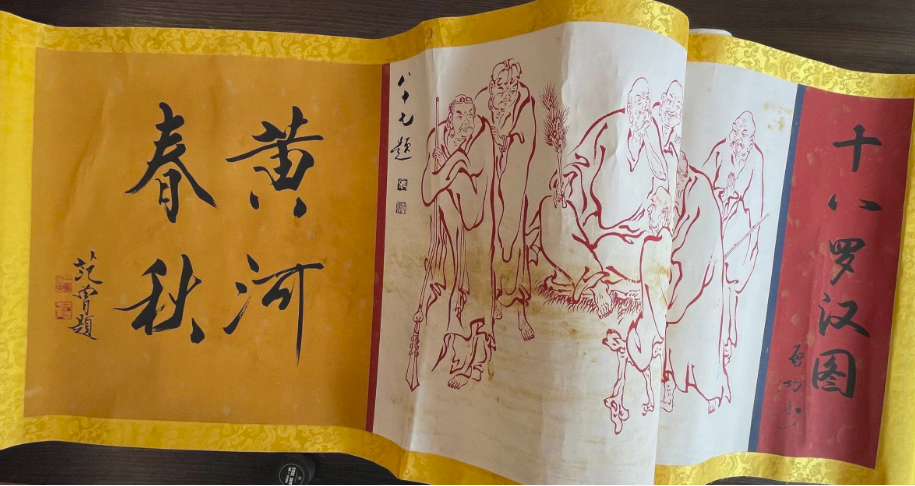 十八罗汉图
启功
八十七题
黄河
春秋
范曾题